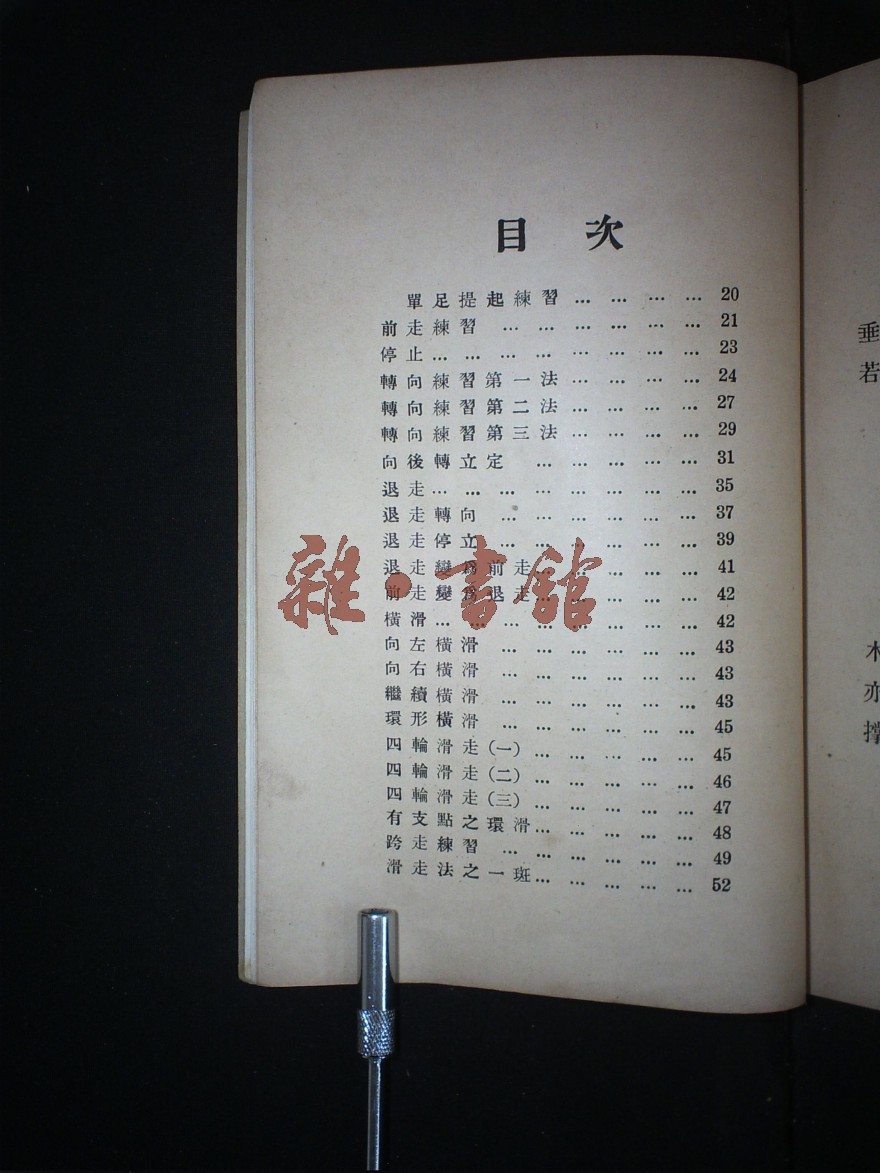 目次
單足提起練習 … … … … 20
前走練習 … … … … … … 21
停止 … … … … … … … … 23
轉向練習第一法 … … … … 24
轉向練習第二法 … … … … 27
轉向練習第三法 … … … … 29
向後轉立定 … … … … … 31
退走 … … … … … … … … 35
退走轉向 … … … … … … 37
退走停立 … … … … … … 39
退走變爲前走 … … … … … 41
前走變爲退走 … … … … … 42
橫滑 … … … … … … … … 42
向左橫滑 … … … … … … 43
向右橫滑 … … … … … … 43
繼續橫滑 … … … … … … 43
環形橫滑 … … … … … … 45
四輪滑走(一) … … … … … 45
四輪滑走(二) … … … … … 46
四輪滑走(三) … … … … … 47
有支點之環滑 … … … … … 48
跨走練習 … … … … … … 49
滑走法之一斑 … … … … … 52
雜·書館
垂
若
亦